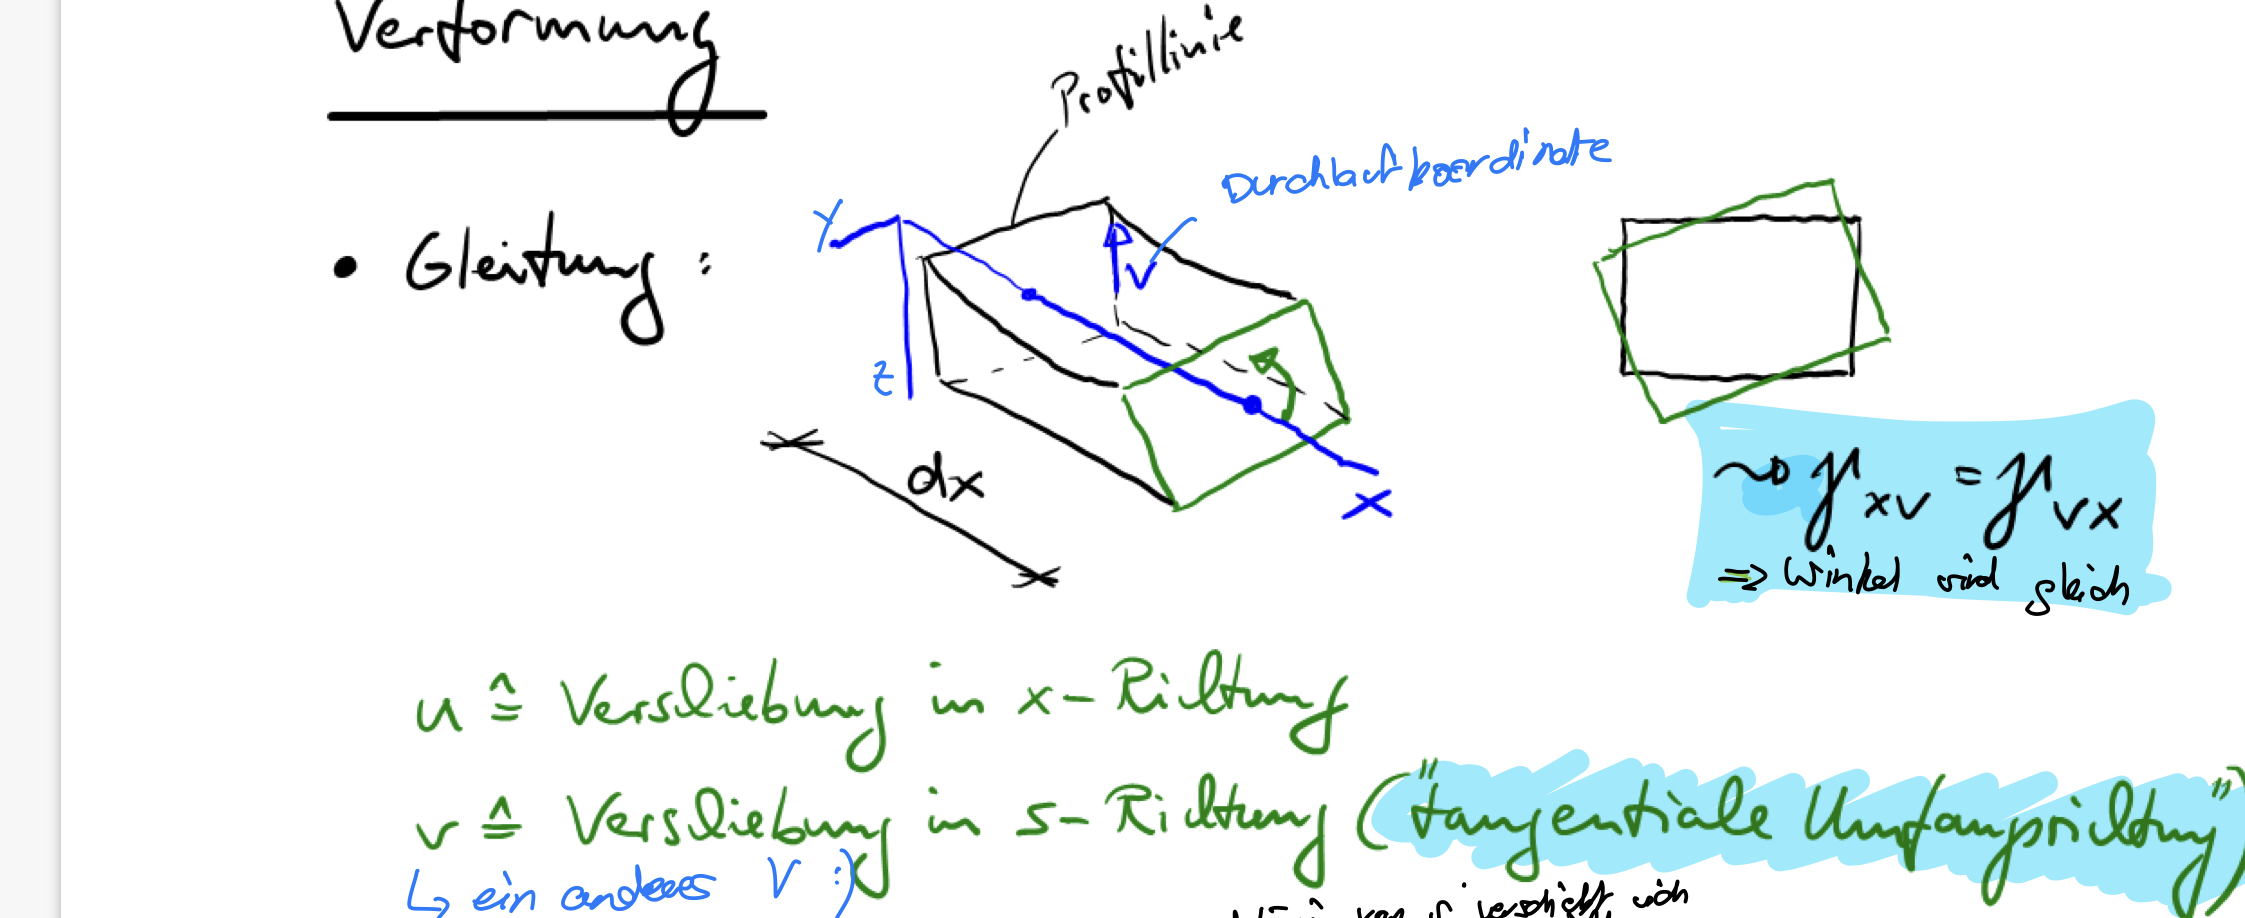 Verformung
Profillinie
Durchlaufkoordinate
• Gleitung:
y
v
z
dx
x
~> γxv = γvx
=> Winkel sind gleich
u ≙ Verschiebung in x-Richtung
v ≙ Verschiebung in s-Richtung ("tangentiale Umfangsrichtung")
↳ ein anderes V :)
verschiebt sich